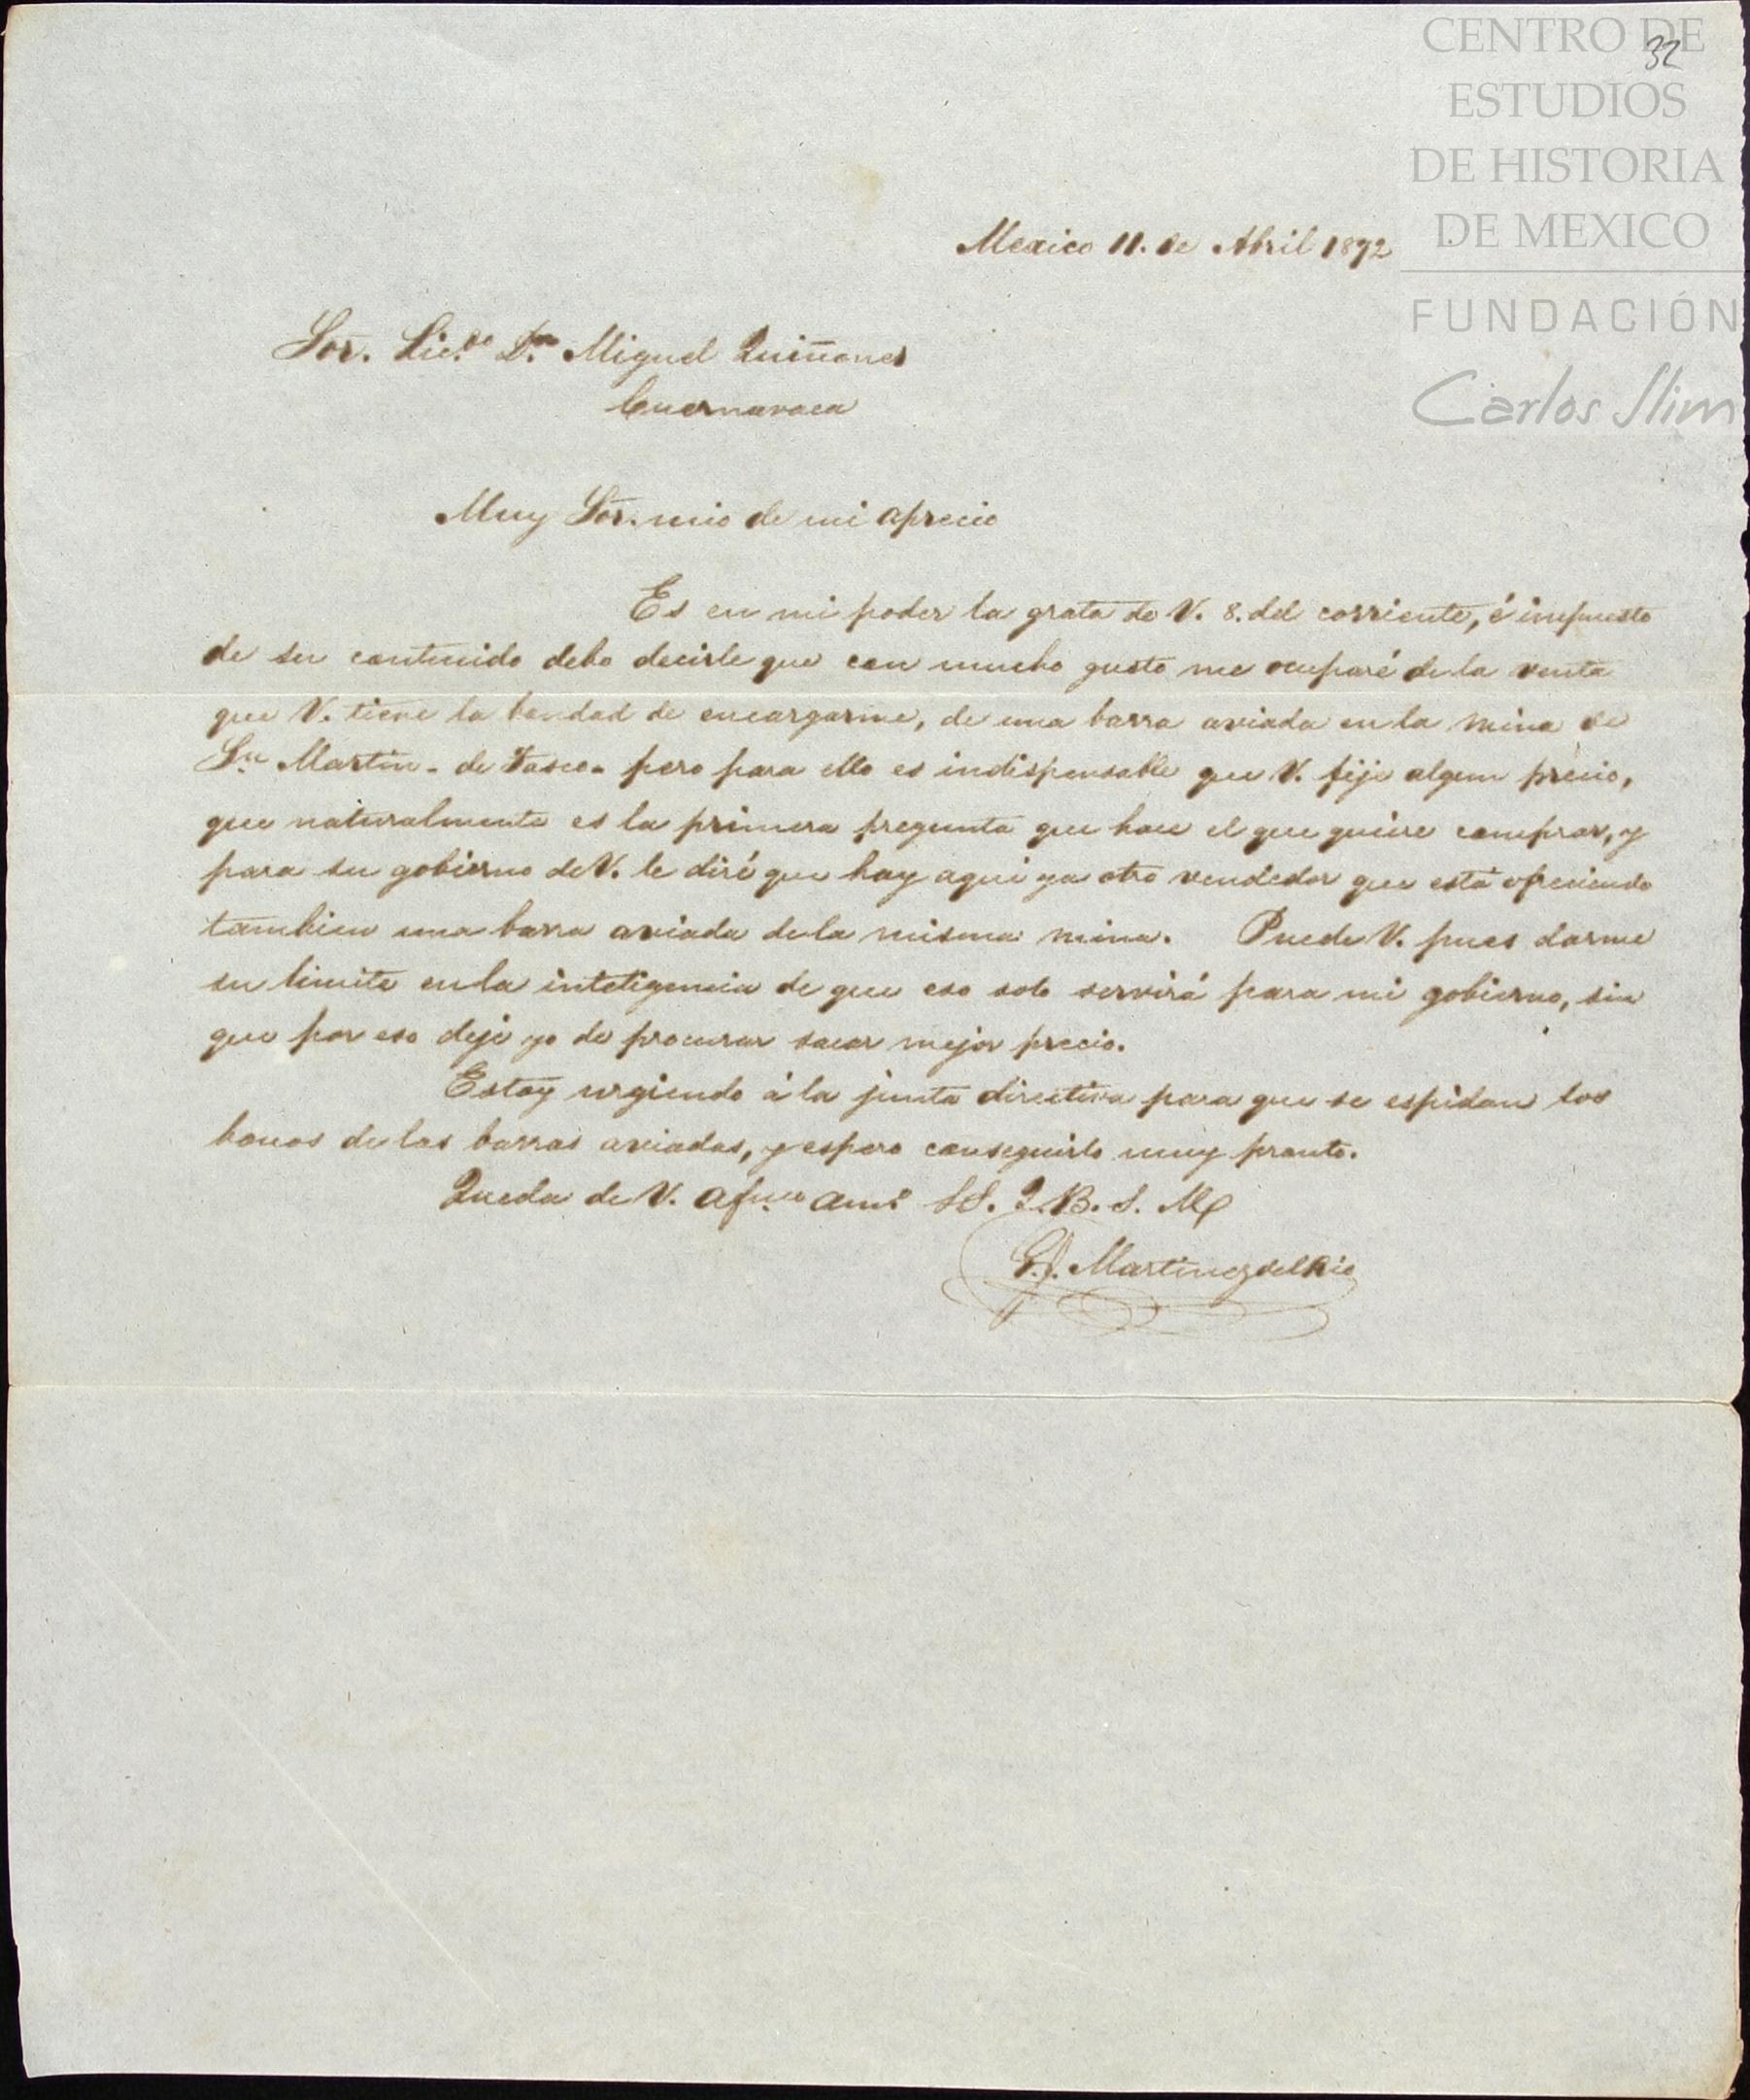 CENTRO DE
32
ESTUDIOS
DE HISTORIA
DE MEXICO
FUNDACIÓN
Carlos Slim
Mexico 11. de Abril 1892
Sor. Licdo. Dn. Miguel Quiñones
Cuernavaca
Muy Sor. mio de mi aprecio
Es en mi poder la grata de V. 8. del corriente, é impuesto
de su contenido debo decirle que con mucho gusto me ocuparé de la venta
que V. tiene la bondad de encargarme, de una barra aviada en la mina de
Sn. Martin - de Tasco - pero para ello es indispensable que V. fije algun precio,
que naturalmente es la primera pregunta que hace el que quiere comprar, y
para su gobierno de V. le diré que hay aqui ya otro vendedor que está ofreciendo
tambien una barra aviada de la misma mina. Puede V. pues darme
su limite en la inteligencia de que eso solo servirá para mi gobierno, sin
que por eso deje yo de procurar sacar mejor precio.
Estoy urgiendo á la junta directiva para que se espidan los
bonos de las barras aviadas, y espero conseguirlo muy pronto.
Queda de V. afmo. amo. SS. Q. B. S. M
Martinez del Rio